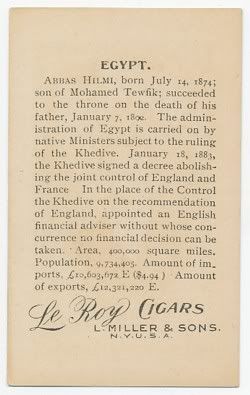 EGYPT.
ABBAS HILMI, born July 14, 1874;
son of Mohamed Tewfik; succeeded
to the throne on the death of his
father, January 7, 1892. The admin-
istration of Egypt is carried on by
native Ministers subject to the ruling
of the Khedive. January 18, 1883,
the Khedive signed a decree abolish-
ing the joint control of England and
France In the place of the Control
the Khedive on the recommendation
of England, appointed an English
financial adviser without whose con-
currence no financial decision can be
taken. Area, 400,000 square miles.
Population, 9,734,405. Amount of im-
ports, £10,603,672 E ($4.94) Amount
of exports, £12,321,220 E.
Le Roy CIGARS
L. MILLER & SONS.
N.Y.U.S.A.